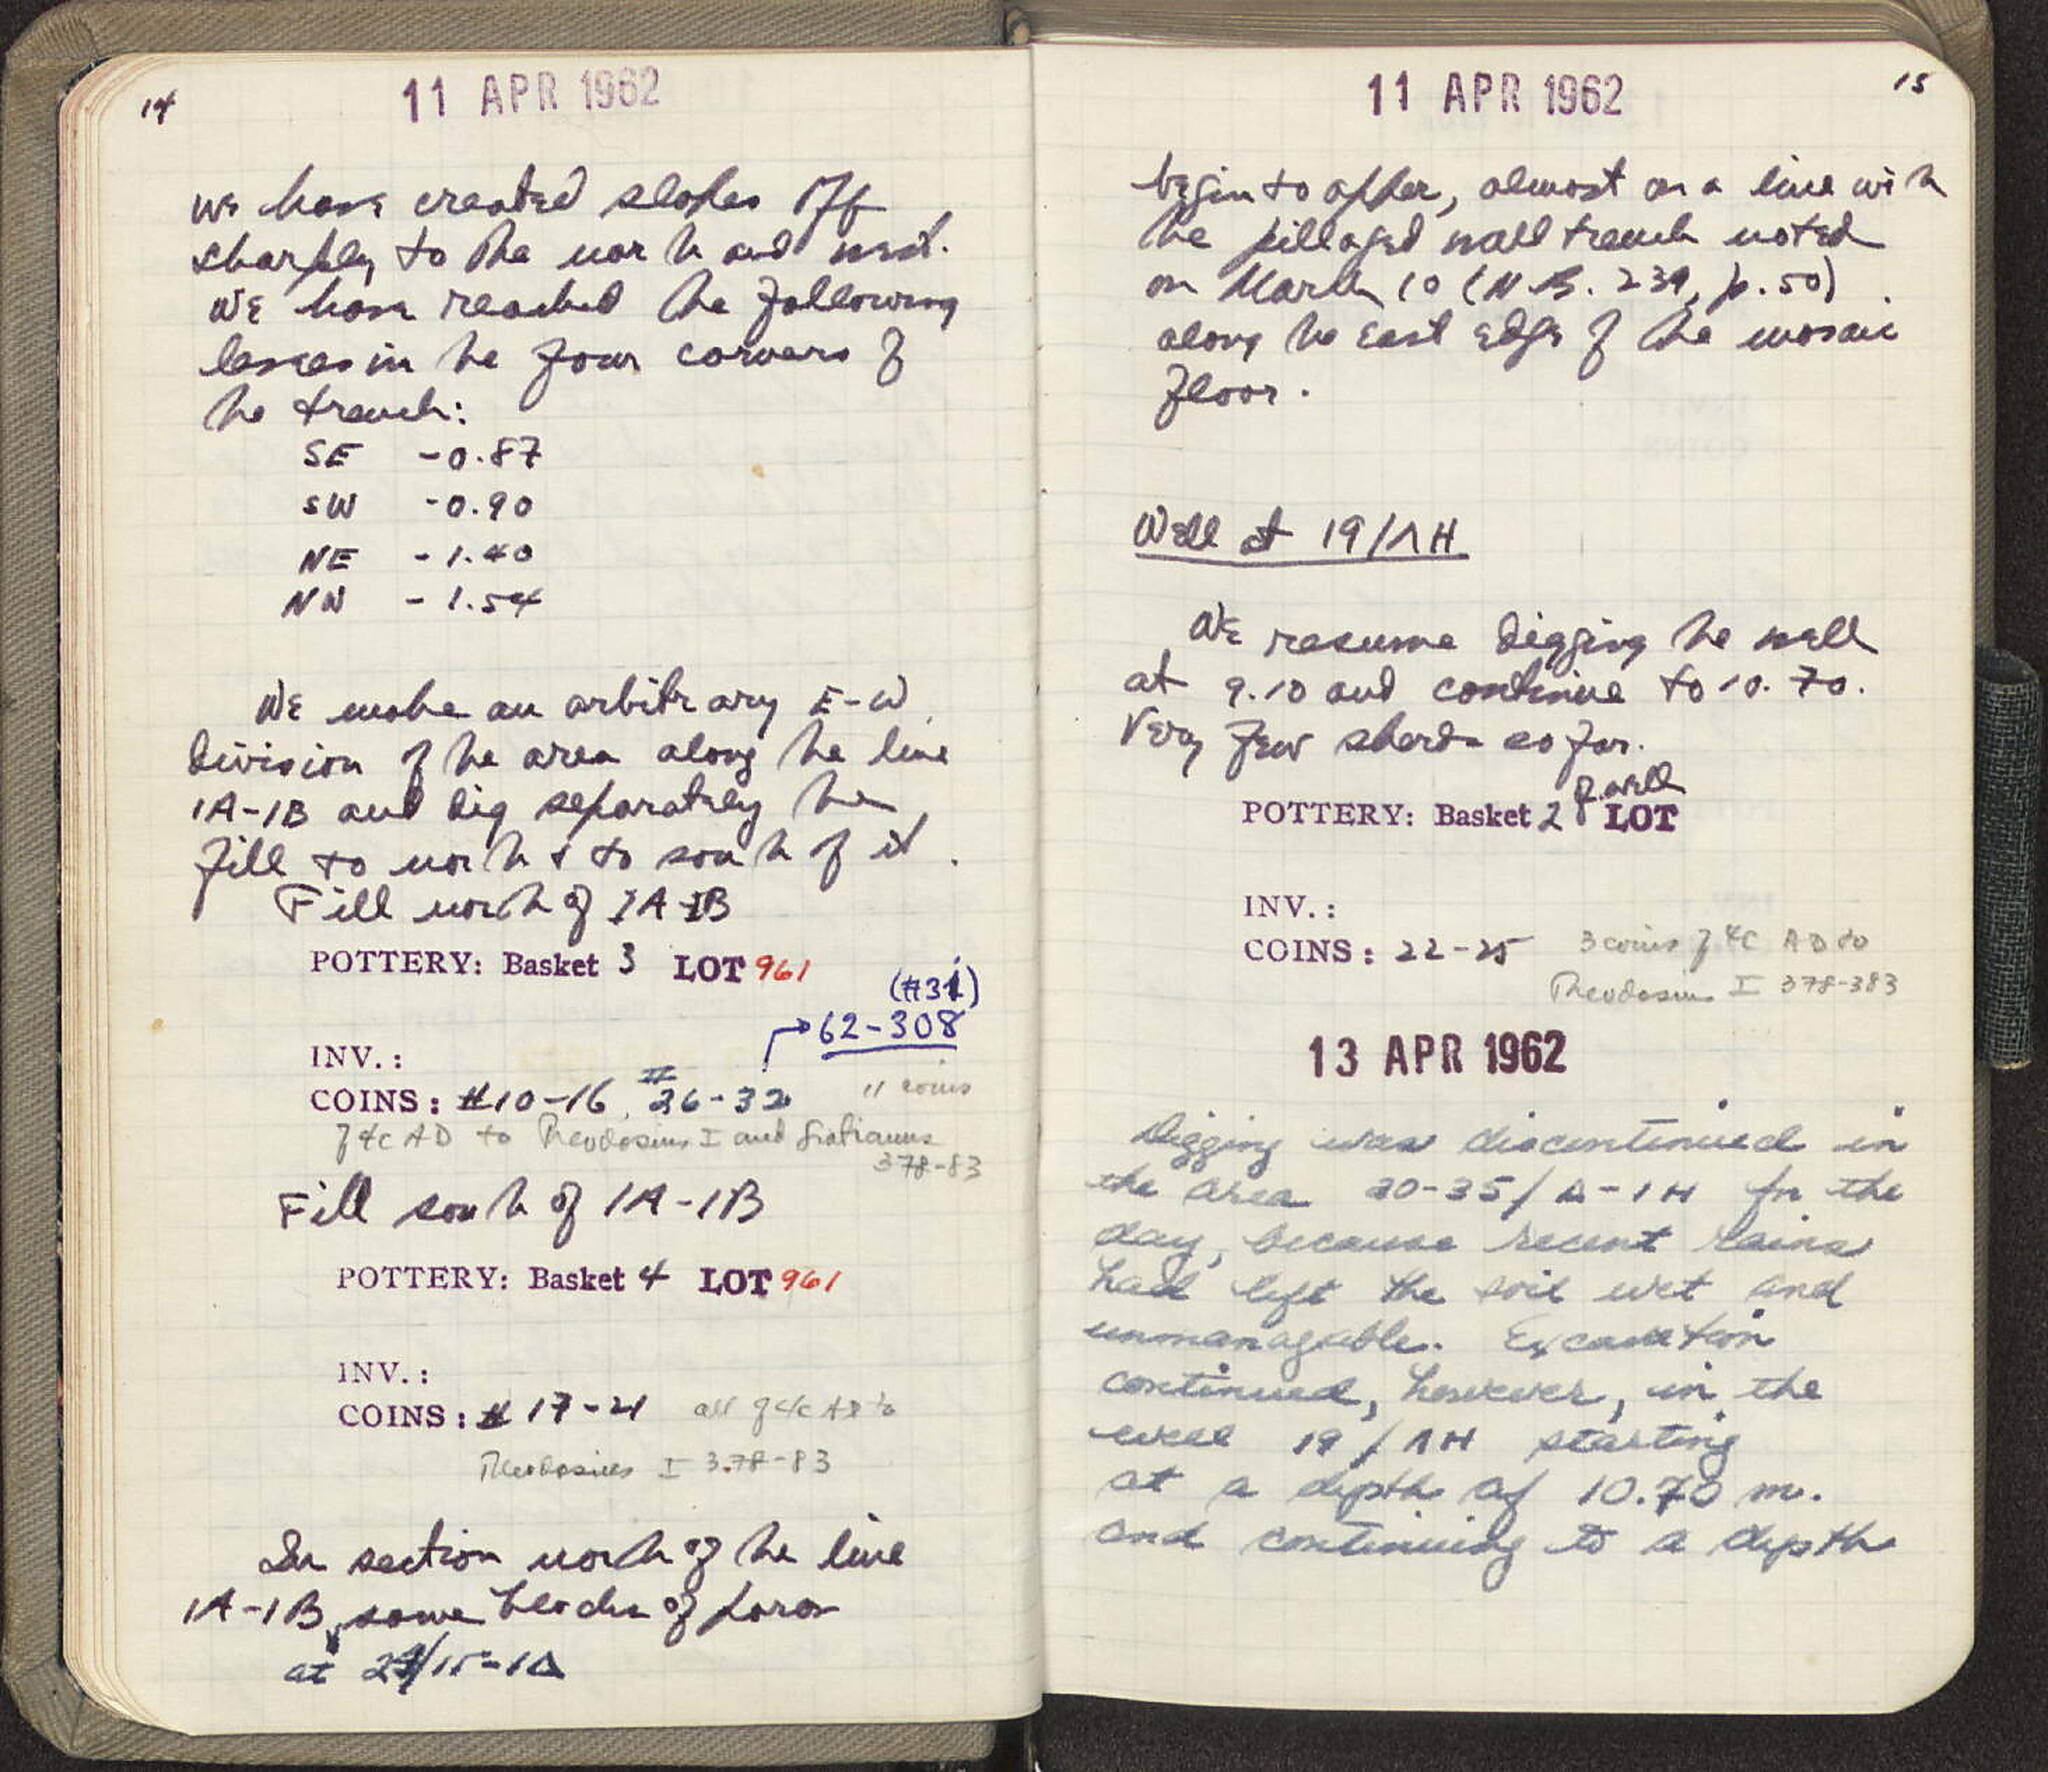 14
11 APR 1962
we have created slopes off
sharply to the north and west.
We have reached the following
levels in the four corners of
the trench:
SE -0.87
SW -0.90
NE -1.40
NW -1.54
We make an arbitrary E-W
division of the area along the line
1A-1B and dig separately the
fill to north & to south of it.
Fill north of 1A-1B
POTTERY: Basket 3 LOT 961
(#31)
62-308
INV.:
COINS: #10-16, #26-32 11 coins
of 4c AD to Theodosius I and Gratianus
378-83
Fill south of 1A-1B
POTTERY: Basket 4 LOT 961
INV.:
COINS: # 17-21 all of 4c AD to
Theodosius I 378-83
In section north of the line
1A-1B, some blocks of poros
at
15
11 APR 1962
begin to appear, almost on a line with
the pillaged wall trench noted
on March 10 (N.B. 239, p. 50)
along the east edge of the mosaic
floor.
Well at 19/ΛH
We resume digging the well
at 9.10 and continue to 10.70.
Very few sherds so far.
POTTERY: Basket 2 of well LOT
INV.:
COINS: 22-25 3 coins of 4c AD to
Theodosius I 378-383
13 APR 1962
Digging was discontinued in
the area for the
day, because recent rains
had left the soil wet and
unmanagable. Excavation
continued, however, in the
well 19/ΛH starting
at a depth of 10.70 m.
and continuing to a depth